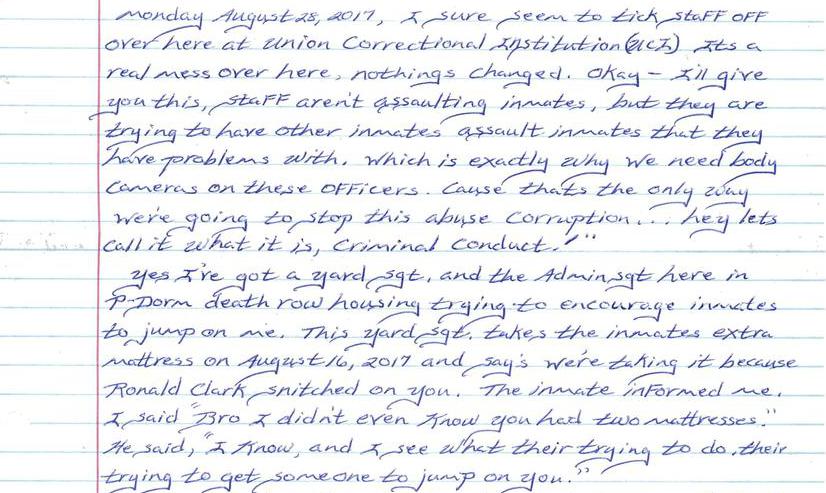 Monday August 28, 2017, I sure seem to tick staff off
over here at Union Correctional Institution (UCI) Its a
real mess over here, nothings changed. Okay - I'll give
you this, staff aren't assaulting inmates, but they are
trying to have other inmates assault inmates that they
have problems with. Which is exactly why we need body
cameras on these officers. Cause thats the only way
we're going to stop this abuse corruption... hey lets
call it what it is, Criminal Conduct!"
yes I've got a yard sgt, and the Admin sgt here in
P-Dorm death row housing trying to encourage inmates
to jump on me. This yard sgt. takes the inmates extra
mattress on August 16, 2017 and say's we're taking it because
Ronald Clark snitched on you. The inmate informed me.
I said "Bro I didn't even know you had two mattresses."
He said, "I know, and I see what their trying to do, their
trying to get someone to jump on you."